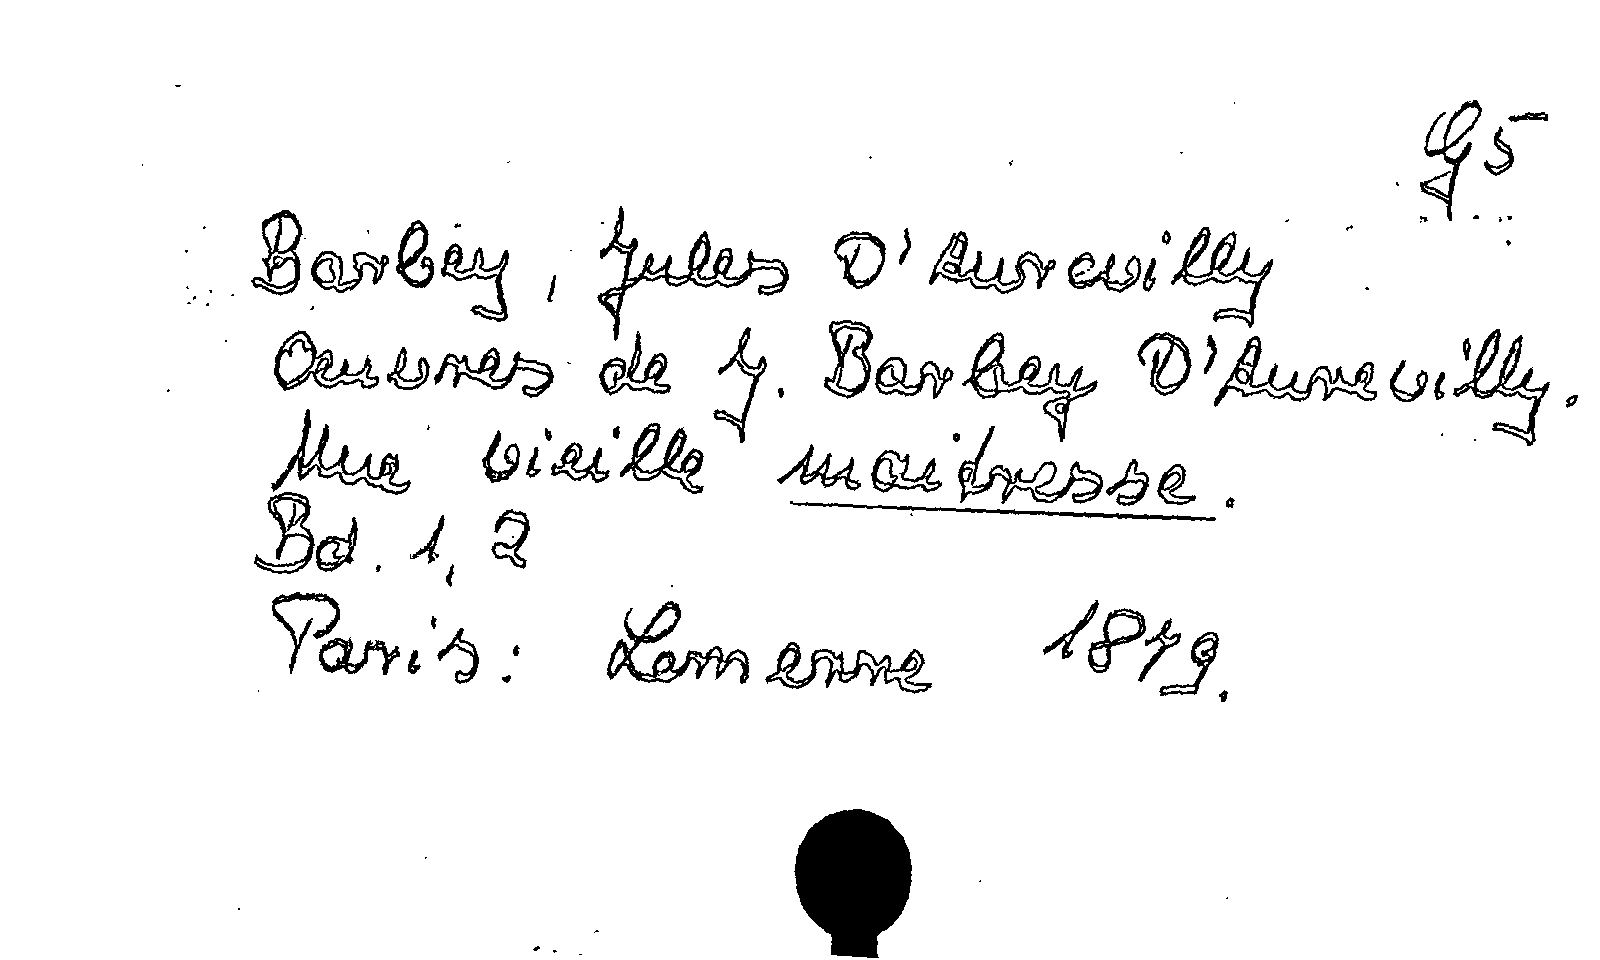 G5
Barbey, Jules D'Aurevilly
Oeuvres de J. Barbey D'Aurevilly.
Une vieille maitresse.
Bd. 1, 2
Paris: Lemerre 1879.